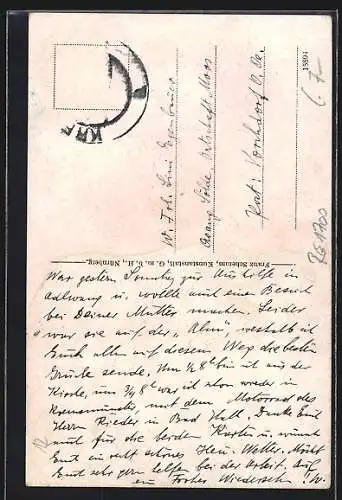 15894
W. Frl. Lini
Post: Vorchdorf O. Oe.
Franz Schemm, Kunstanstalt, G. m. b. H., Nürnberg.
War gestern Sonntag zur Aushilfe in
u. wollte auf einen Besuch
bei Deiner Mutter machen. Leider
war sie auf der „Alm", weshalb ich
Euch allen auf diesem Weg die besten
Grüße sende. Um ½ 8 h bin ich aus der
Kirche, um ¾ 8 h war ich schon wieder in
Kremsmünster, mit dem Motorrad des
Herrn Rieder in Bad Hall. Danke Euch
auch für die beiden Karten u. wünsche
Euch ein recht schönes Heu-Wetter. Möcht
Euch sehr gern helfen bei der Arbeit. Auf
ein Frohes Wiedersehn!